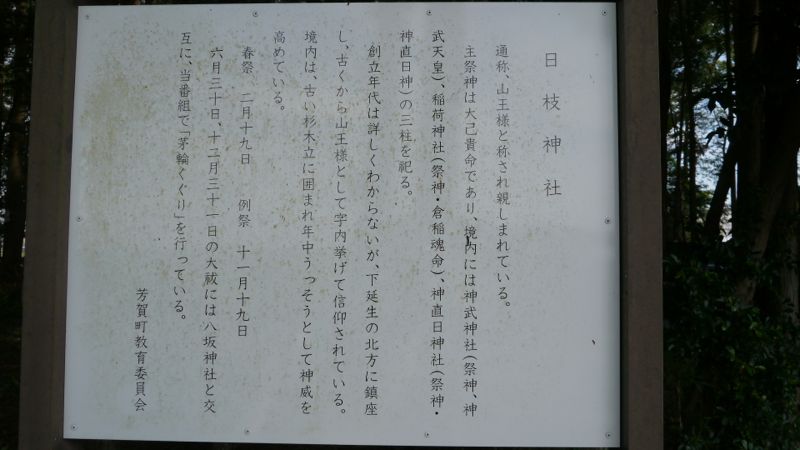 日枝神社
通称、山王様と称され親しまれている。
主祭神は大己貴命であり、境内には神武神社(祭神、神
武天皇)、稲荷神社(祭神・倉稲魂命)、神直日神社(祭神・
神直日神)の三柱を祀る。
創立年代は詳しくわからないが、下延生の北方に鎮座
し、古くから山王様として字内挙げて信仰されている。
境内は、古い杉木立に囲まれ年中うっそうとして神威を
高めている。
春祭 二月十九日 例祭 十一月十九日
六月三十日、十二月三十一日の大祓には八坂神社と交
互に、当番組で「茅輪くぐり」を行っている。
芳賀町教育委員会